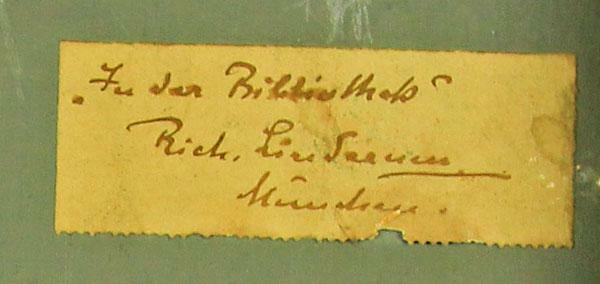 „In der Bibliothek“
Rich. Lindmann
München.